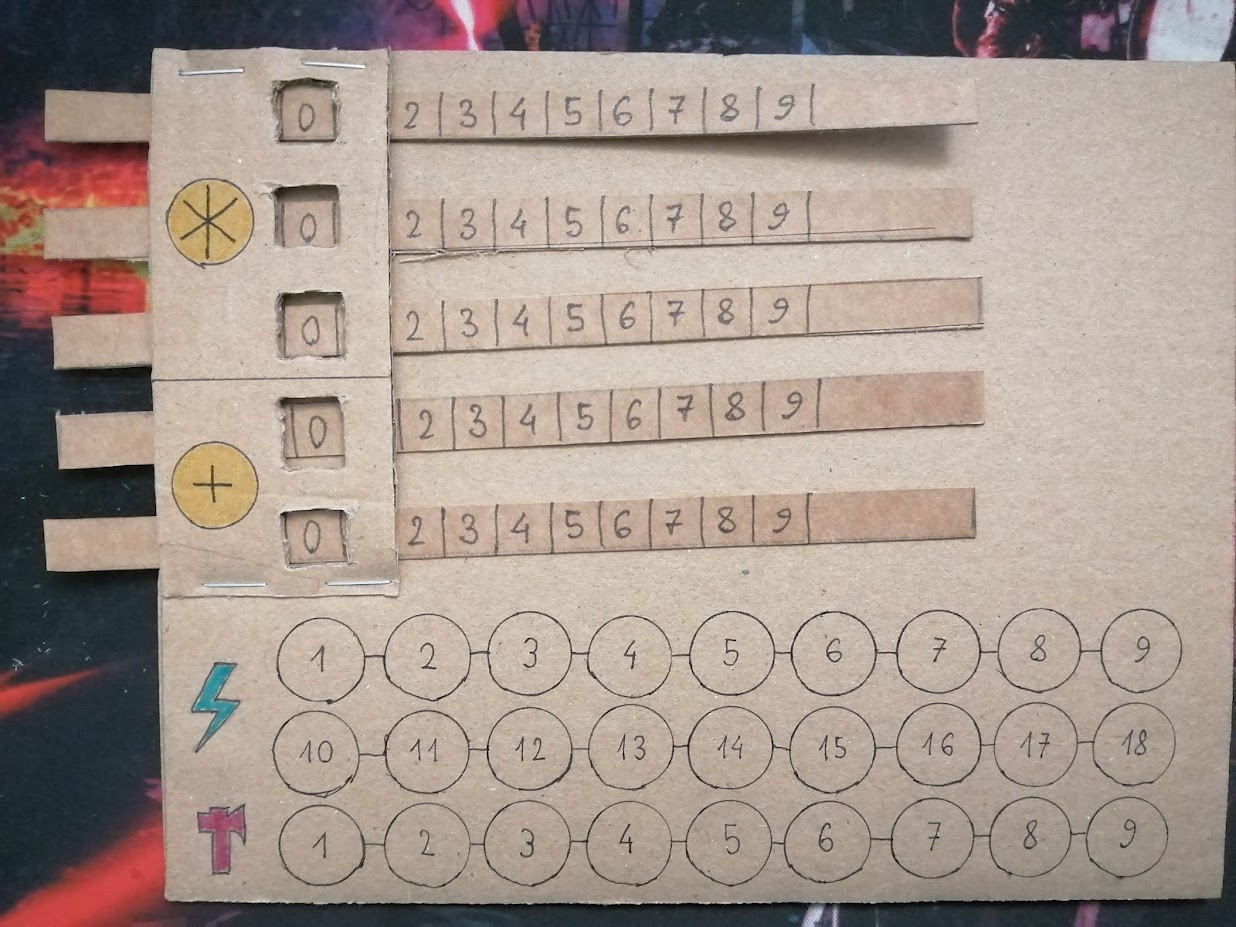 0 2 3 4 5 6 7 8 9
0 2 3 4 5 6 7 8 9
0 2 3 4 5 6 7 8 9
0 2 3 4 5 6 7 8 9
+
0 2 3 4 5 6 7 8 9
1 2 3 4 5 6 7 8 9
10 11 12 13 14 15 16 17 18
1 2 3 4 5 6 7 8 9